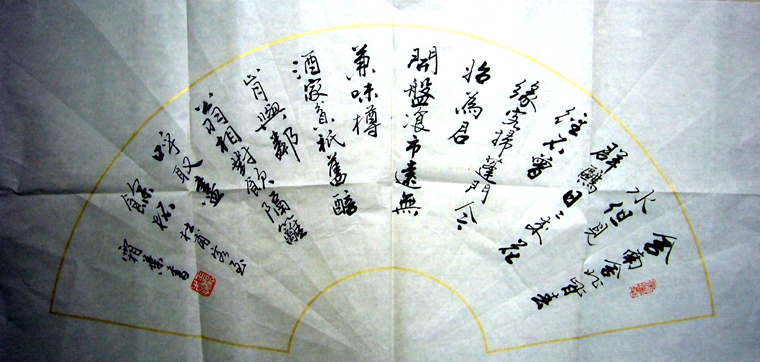 舍南舍北皆春
水但見
群鷗日々來花
徑不曾
緣客掃蓬門今
始為君
開盤飧市遠無
兼味樽
酒家貧祇舊醅
肯與鄰
翁相對飲隔籬
呼取盡
餘杯
杜甫客至
書